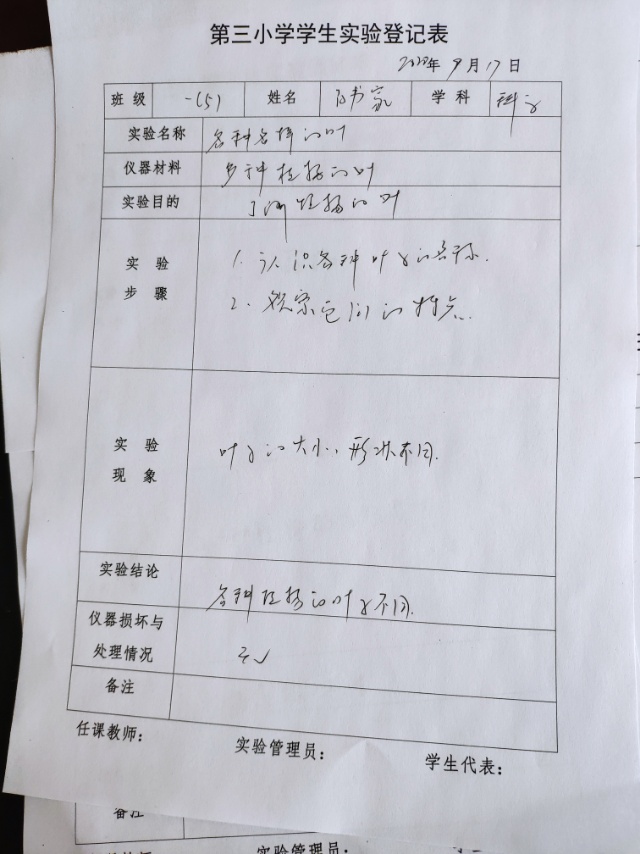 第三小学学生实验登记表
2020年9月17日
班级 一(5) 姓名 学科 科学
实验名称 各种各样的叶
仪器材料 多种植物的叶
实验目的 了解植物的叶
实验步骤 1. 认识各种叶子的名称.
2. 观察它们的特点.
实验现象 叶子的大小、形状不同.
实验结论 各种植物的叶子不同.
仪器损坏与处理情况 无
备注
任课教师: 实验管理员: 学生代表:
备注
实验管理员: